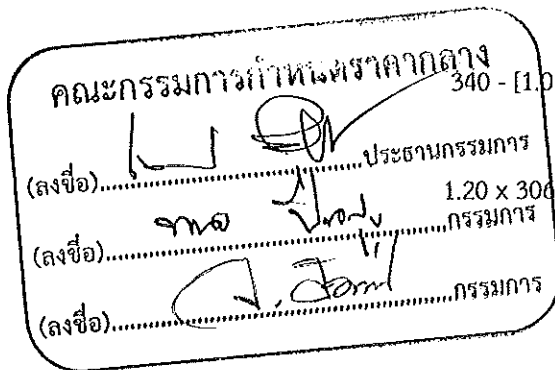 คณะกรรมการกำหนดราคากลาง
340 - [1.0
(ลงชื่อ)....................ประธานกรรมการ
1.20 x 306
(ลงชื่อ)....................กรรมการ
(ลงชื่อ)....................กรรมการ